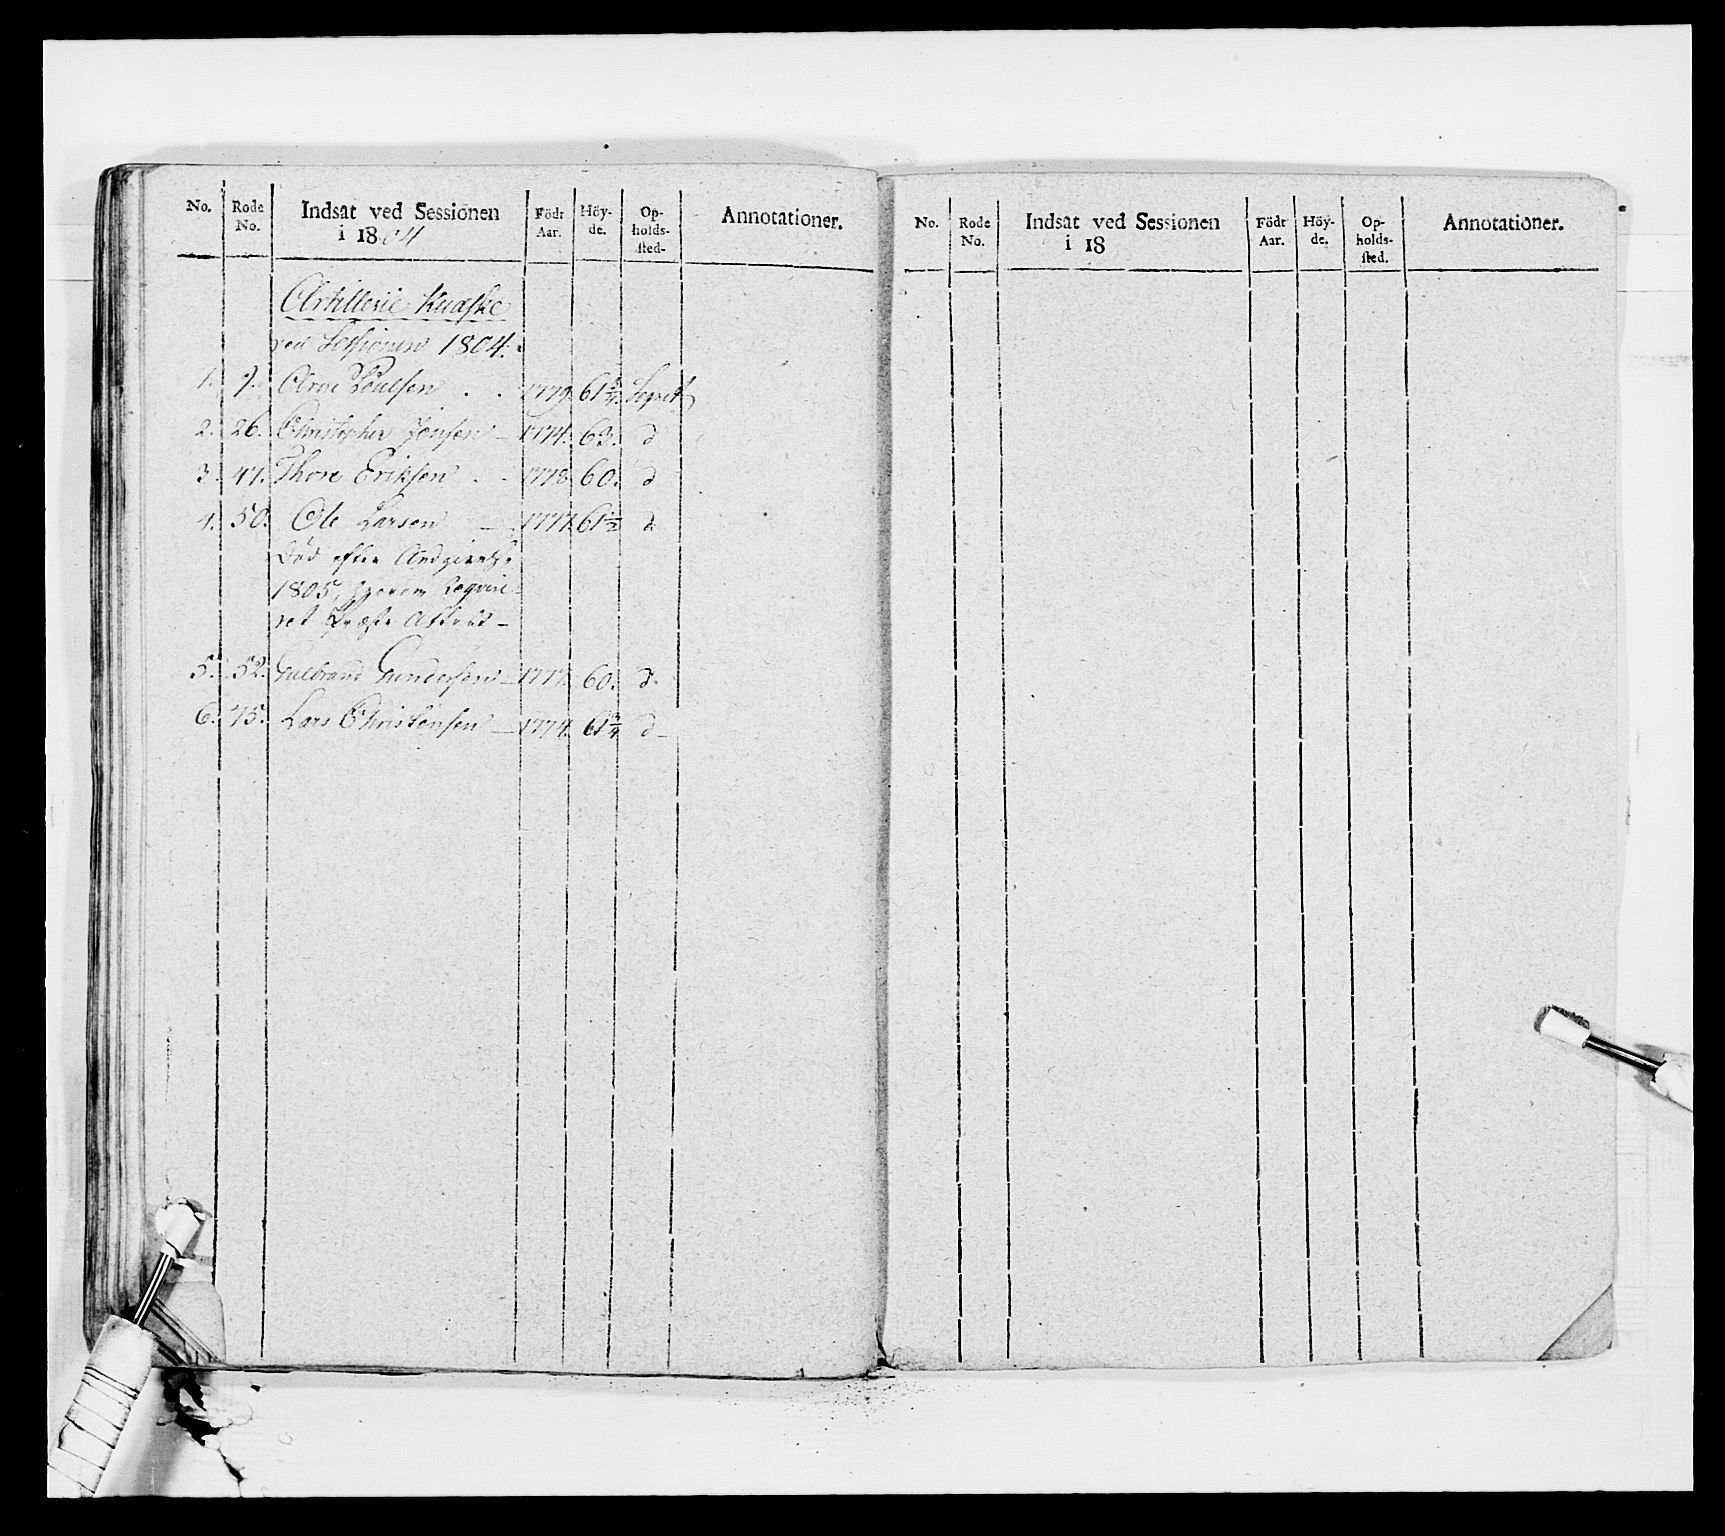 No. Rode No. Indsat ved Sessionen i 1804 Födt Aar. Höy-de. Op-holds-sted- Annotationer.
Artillerie Kudske
ved Sessionen 1804.
1. 7. Arne Poulsen . . 1779. 61 3/4. Sognet
2. 26. Christopher Jensen – 1774. 63. d
3. 47. Thore Eriksen . . 1778. 60. d
4. 50. Ole Larsen – 1777. 61 1/2 d
Död efter Angivelse
1805, hvorom Reqvire-
ret Præste Attest –
5. 52. Gulbrand Gundersen – 1777. 60. d.
6. 75. Lars Christensen – 1774. 61 3/4 d –
No. Rode No. Indsat ved Sessionen i 18 Födt Aar. Höy-de. Op-holds-sted. Annotationer.